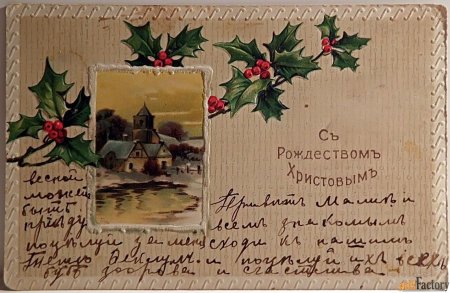 Съ
Рождествомъ
Христовымъ
весной
можетъ
быть
приеду
Привитъ Мамии и
всем знакомым
поцелуй за меня сходи къ нашим
и поцелуй ихъ всехъ
будь здорова и счастлива